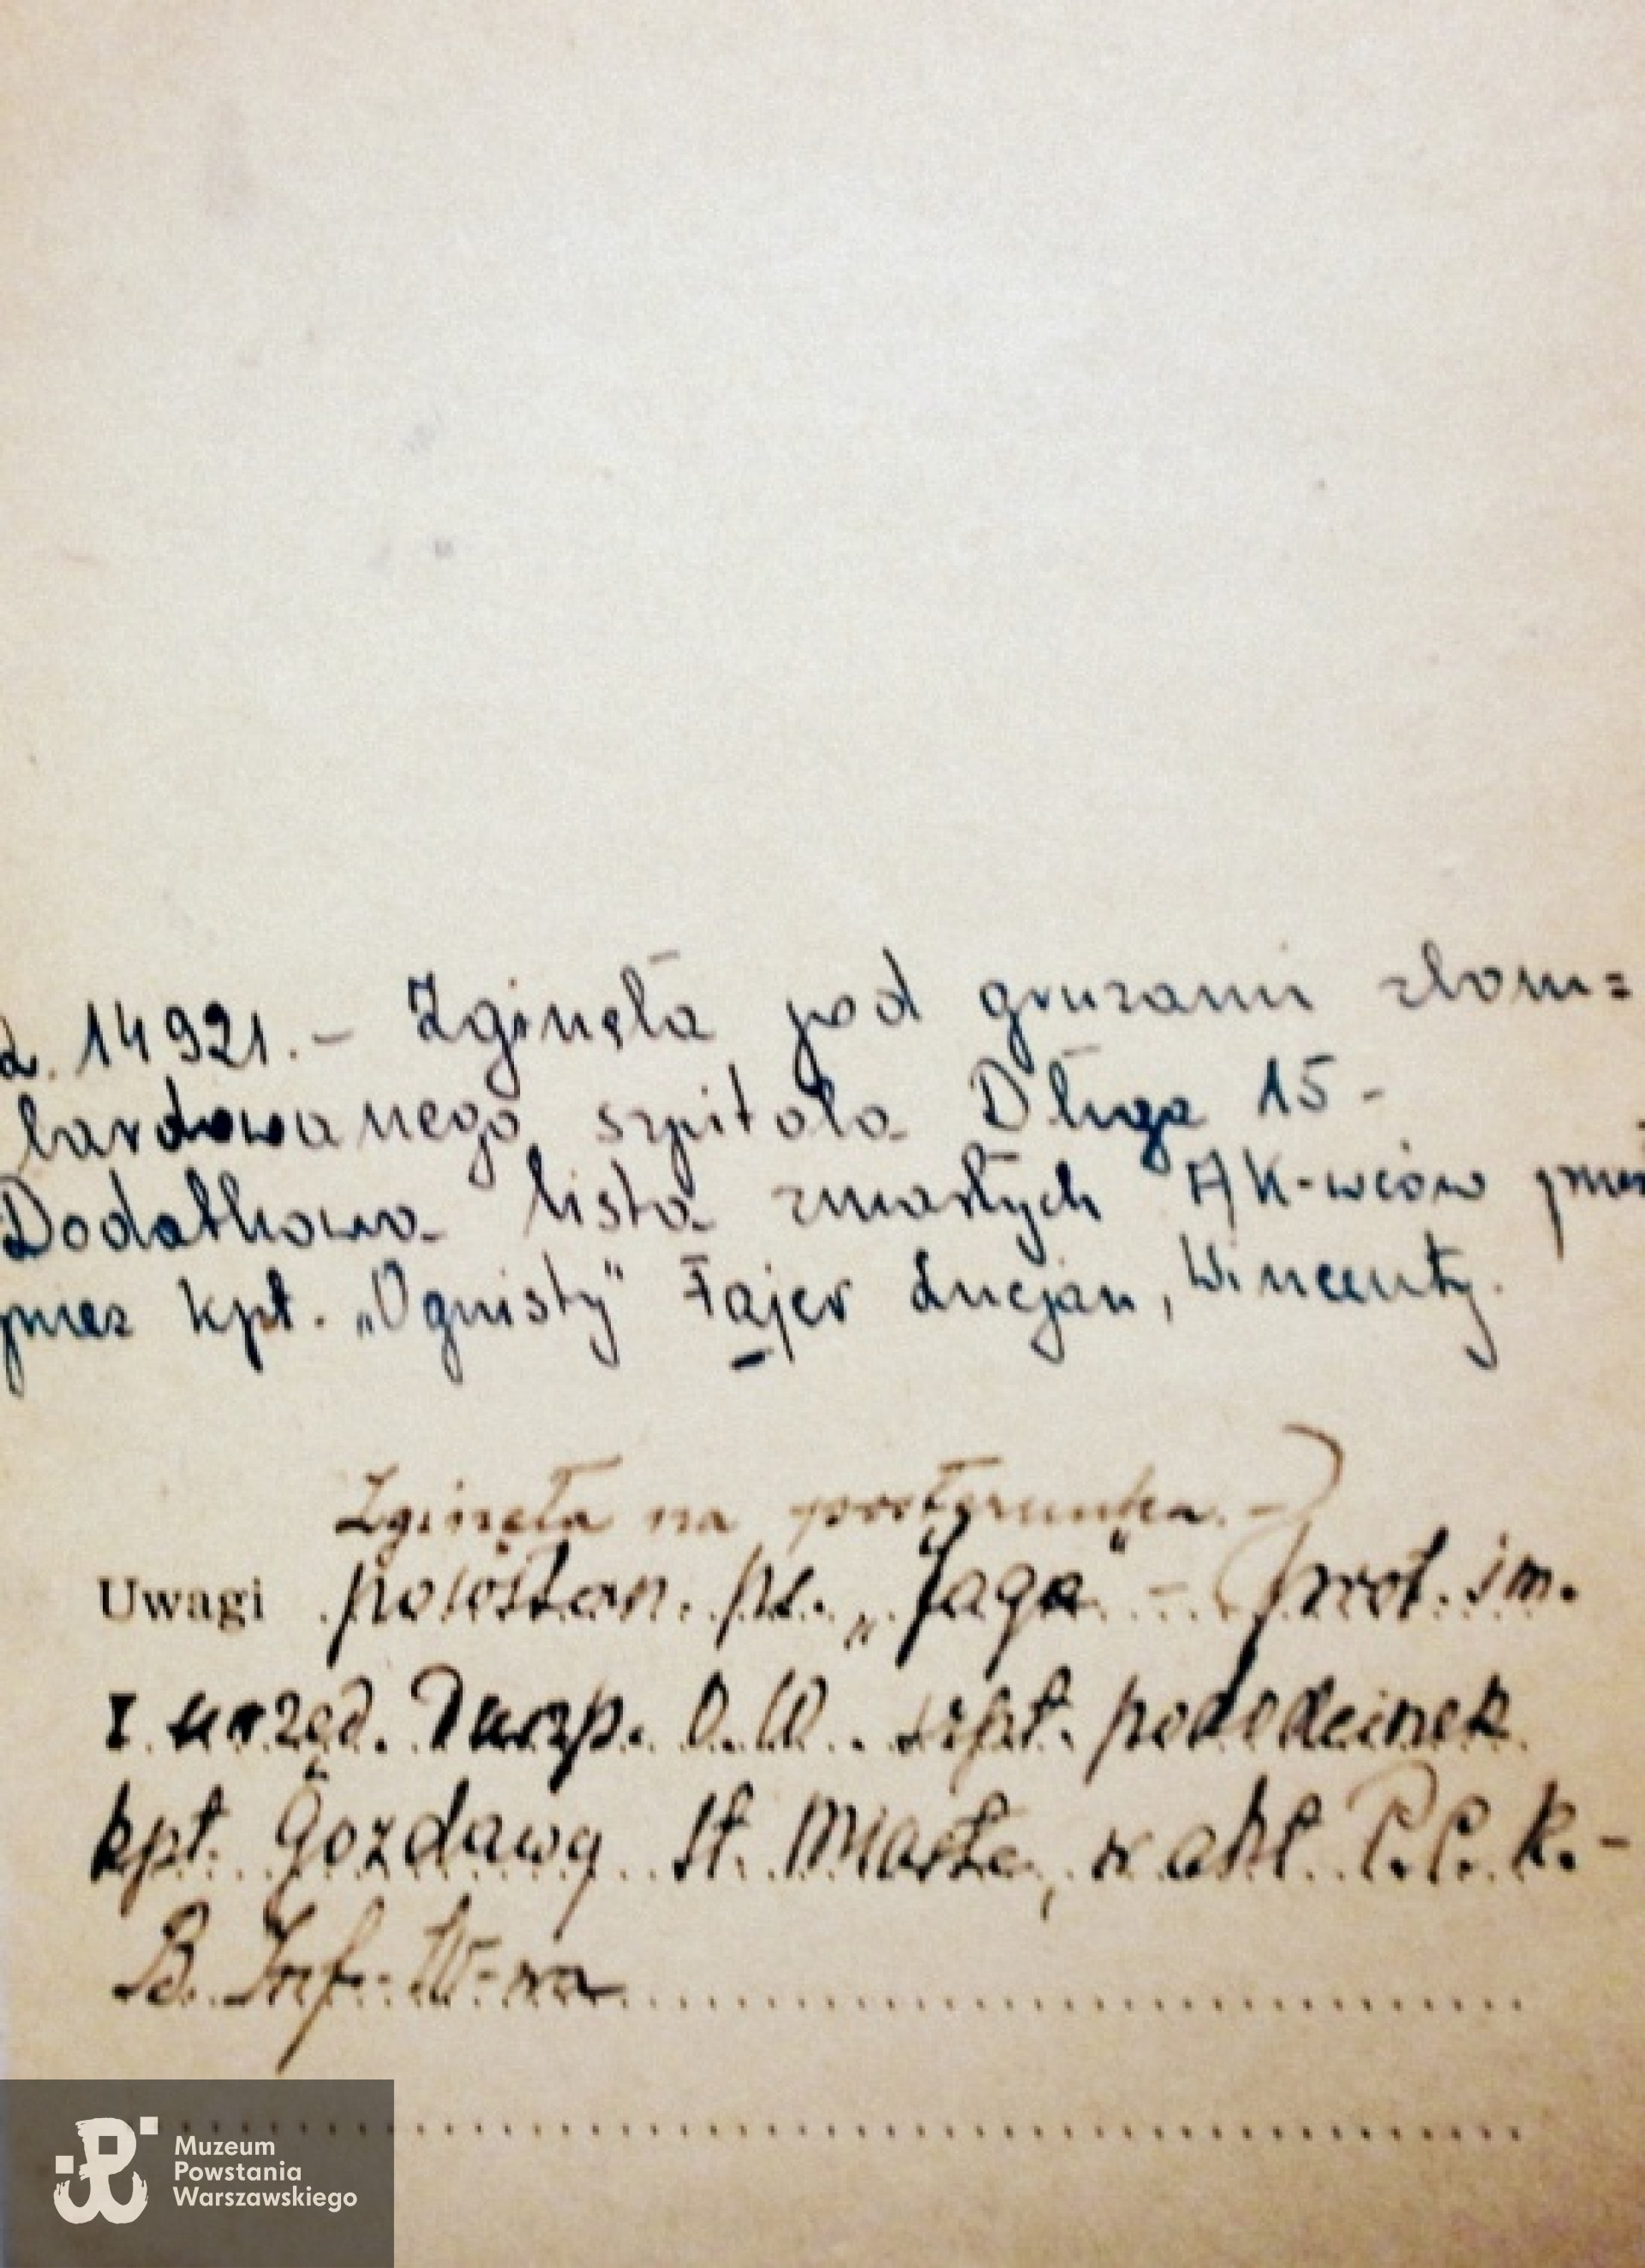 L. 14921. – Zginęła pod gruzami zbom=
bardowanego szpitala Długa 15 –
Dodatkowa lista zmarłych AK-wców
przez kpt. „Ognisty" Fajer Lucjan, Wincenty.
Zginęła na posterunku. –
Uwagi powstan. ps. „Jaga" – prot. im.
I urzęd. Duszp. O.W. szpt. pododcinek
kpt. Gozdawy St. Miasto, w akt P.C.K. –
B. Inf. – W-wa
Muzeum
Powstania
Warszawskiego